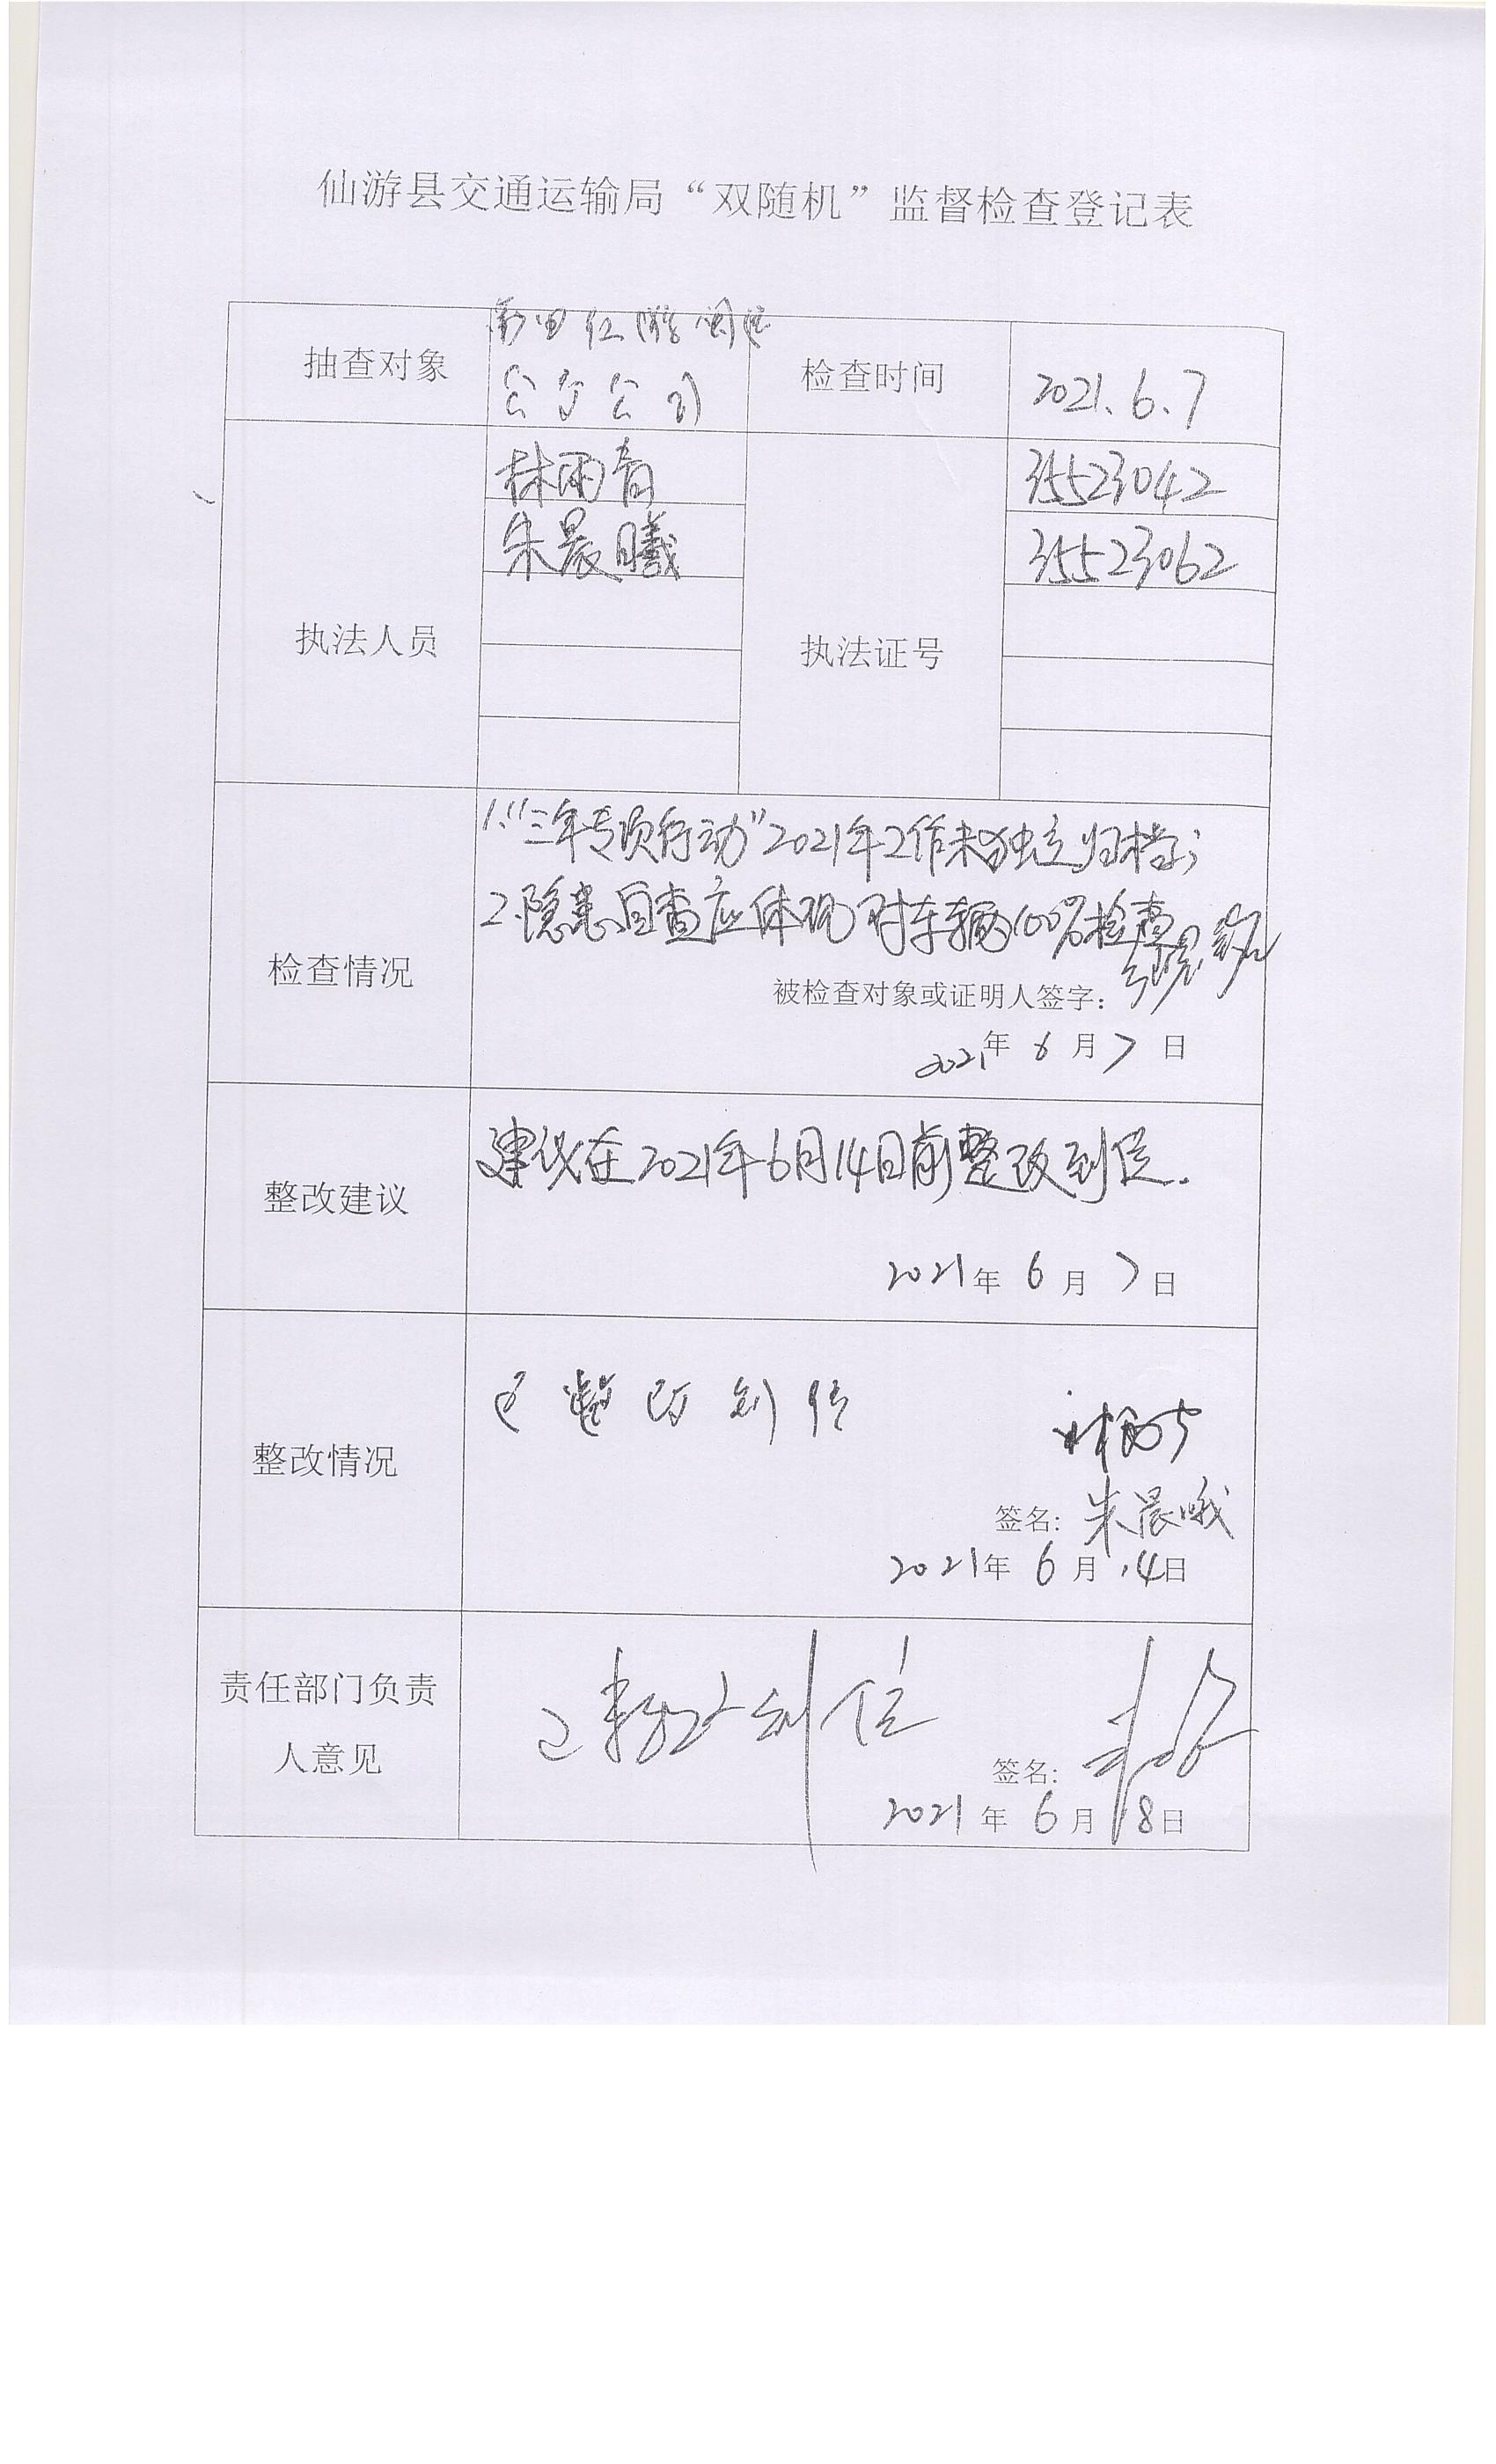 仙游县交通运输局“双随机”监督检查登记表
抽查对象
莆田仙游闽运
公交公司
检查时间
2021.6.7
执法人员
林雨青
朱晨曦
执法证号
35523042
35523062
检查情况
1.“三年专项行动”2021年工作未独立归档;
2.隐患自查应体现对车辆100%检查
被检查对象或证明人签字:
2021年 6 月 7 日
整改建议
建议在2021年6月14日前整改到位.
2021年 6 月 7 日
整改情况
已整改到位
签名: 朱晨曦
2021年 6 月 14日
责任部门负责
人意见
已整改到位
签名:
2021 年 6 月 18日